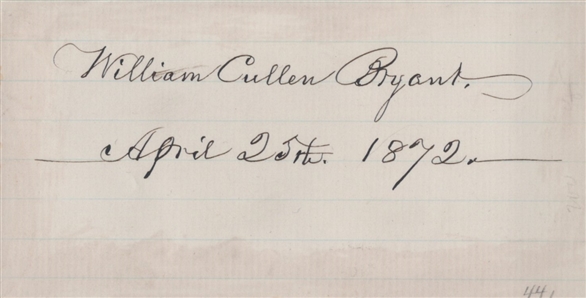 William Cullen Bryant.
April 25th. 1872.
44